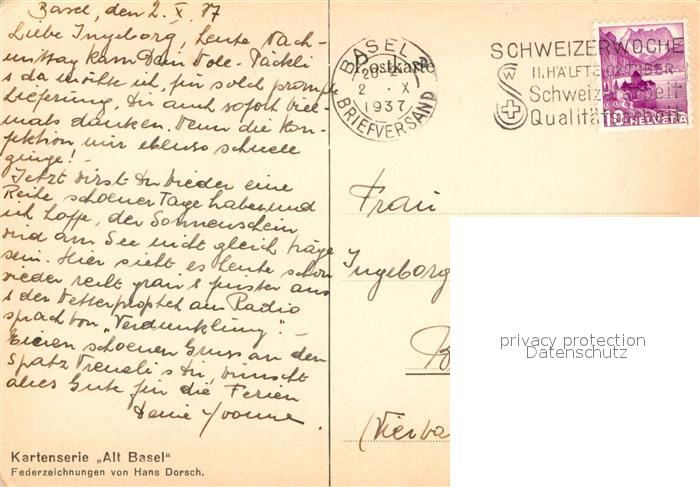 Basel, den 2. X. 37
Liebe Ingeborg, heute Nach-
mittag kam Dein Vole-Päckli
& da möchte ich, für solch prompte
Lieferung, Dir auch sofort viel-
mals danken. Wenn die Kon-
fektion mir ebenso schnell
ginge!
Jetzt wirst Du wieder eine
Reihe schoener Tage haben und
ich hoffe, der Sonnenschein
wird am See nicht gleich träge
sein. Hier sieht es heute schon
wieder recht grau & finster aus
& der Wetterprophet am Radio
sprach von „Verdunklung"! –
Einen schoenen Gruss an den
Spatz Vreneli & Dir, wünscht
alles Gute für die Ferien
Deine Yvonne.
Kartenserie „Alt Basel"
Federzeichnungen von Hans Dorsch.
Postkarte
BASEL 2
20
2. X
1937
BRIEFVERSAND
SCHWEIZERWOCHE
II. HÄLFTE OKTOBER
Schweizerarbeit
Qualitätsarbeit
SW
10 HELVETIA
Frau
Ingeborg
B
(Vierwa
privacy protection
Datenschutz